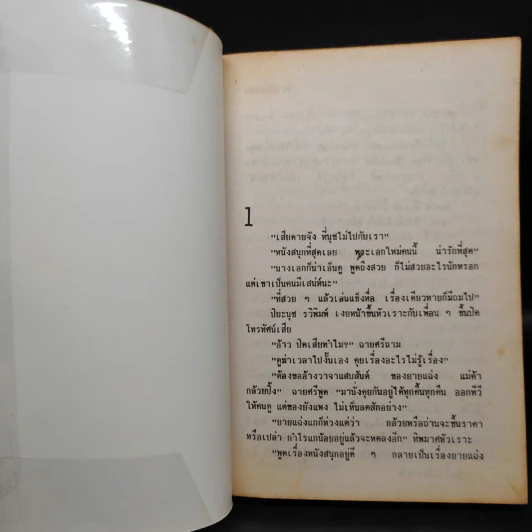 1
"เสียดายจัง ที่นุชไม่ไปกับเรา"
"หนังสนุกที่สุดเลย พระเอกใหม่คนนี้ น่ารักที่สุด"
"นางเอกก็น่าเอ็นดู พูดถึงสวย ก็ไม่สวยอะไรนักหรอก
แต่เขาเป็นคนมีเสน่ห์นะ"
"ที่สวย ๆ แล้วเล่นแข็งทื่อ เรื่องเดียวหายก็มีถมไป"
ปิยะนุช รวิพิมพ์ เงยหน้าขึ้นหัวเราะกับเพื่อน ๆ ขึ้นปิด
โทรทัศน์เสีย
"อ้าว ปิดเสียทำไม?" ฉายศรีถาม
"ดูฆ่าเวลาไปงั้นเอง คุยเรื่องอะไรไม่รู้เรื่อง"
"ต้องขออ้างวาจาแสบสันต์ ของยายแฉ่ง แม่ค้า
กล้วยปิ้ง" ฉายศรีพูด "มานั่งคุยกันอยู่ได้ทุกคืนทุกคืน ออกทีวี
ให้คนดู แต่ของยังแพง ไม่เห็นลดสักอย่าง"
"ยายแฉ่งแกก็ห่วงแต่ว่า กล้วยหรือถ่านจะขึ้นราคา
หรือเปล่า กำไรแกน้อยอยู่แล้วจะหดลงอีก" ทิพมาศหัวเราะ
"พูดเรื่องหนังสนุกอยู่ดี ๆ กลายเป็นเรื่องยายแฉ่ง